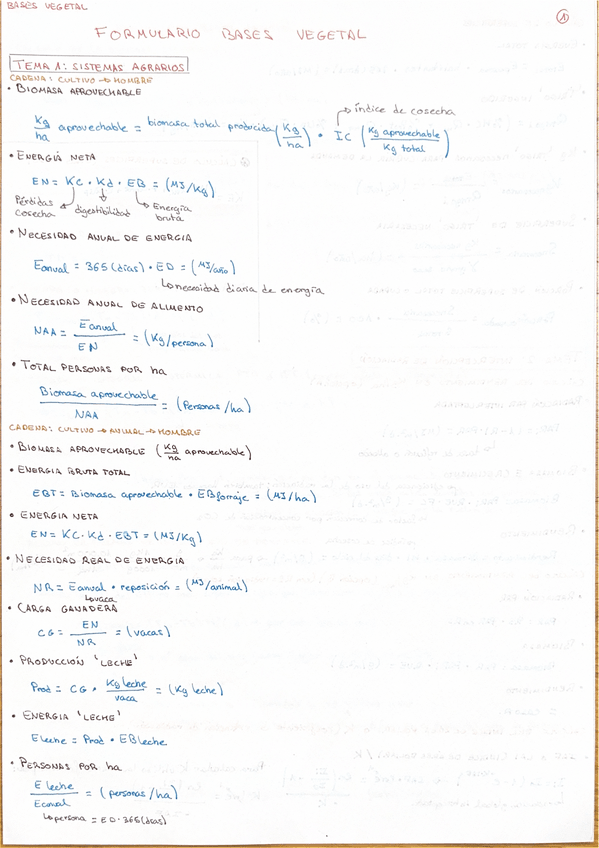 BASES VEGETAL
1
FORMULARIO BASES VEGETAL
TEMA 1: SISTEMAS AGRARIOS
CADENA: CULTIVO → HOMBRE
• BIOMASA APROVECHABLE
índice de cosecha
Kg/ha aprovechable = biomasa total producida (Kg/ha) • IC (Kg aprovechable / Kg total)
• ENERGÍA NETA
EN = Kc • Kd • EB = (MJ/Kg)
Pérdidas cosecha digestibilidad Energía bruta
• NECESIDAD ANUAL DE ENERGIA
Eanual = 365 (días) • ED = (MJ/año)
↳ necesidad diaria de energía
• NECESIDAD ANUAL DE ALIMENTO
NAA = Eanual / EN = (Kg/persona)
• TOTAL PERSONAS POR ha
Biomasa aprovechable / NAA = (Personas/ha)
CADENA: CULTIVO → ANIMAL → HOMBRE
• BIOMASA APROVECHABLE (Kg/ha aprovechable)
• ENERGIA BRUTA TOTAL
EBT = Biomasa aprovechable • EBforraje = (MJ/ha)
• ENERGIA NETA
EN = Kc • Kd • EBT = (MJ/Kg)
• NECESIDAD REAL DE ENERGIA
NR = Eanual • reposición = (MJ/animal)
↳ vaca
• CARGA GANADERA
CG = EN / NR = (vacas)
• PRODUCCIÓN 'LECHE'
Prod = CG • Kg leche / vaca = (Kg leche)
• ENERGIA 'LECHE'
Eleche = Prod • EBleche
• PERSONAS POR ha
E leche / Eanual = (personas/ha)
↳ persona = ED • 365 (días)